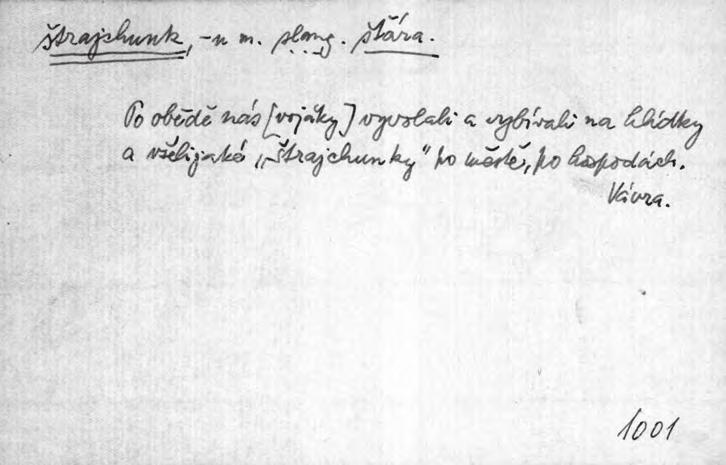 štrajchunk, -u m. slang. štára.
Po obědě nás [vojáky] vyvolali a vybívali na hlídky
a všelijaké „štrajchunky" po městě, po hospodách.
Vávra.
1001